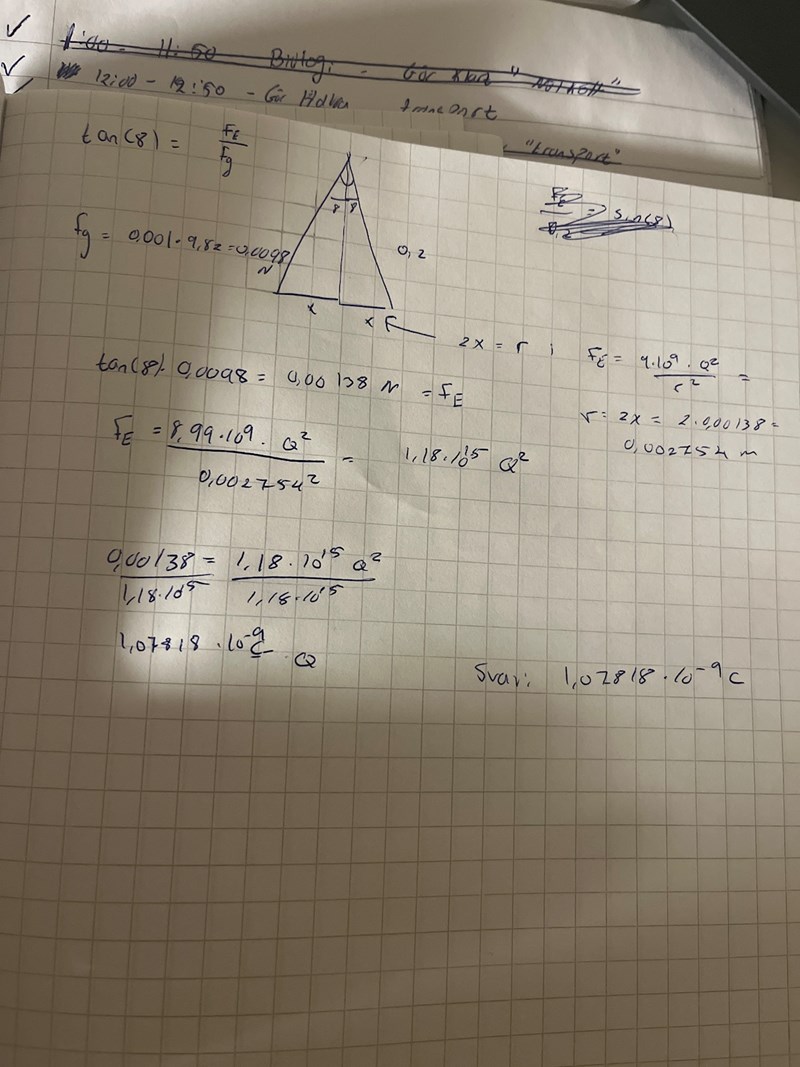 1:00 - 11:50 Biologi - Gör klart
12:00 - 12:50 - Gör
"transport"
tan(8) = F_E / F_g
F_E / 0,2 = sin(8)
8 8
Fg = 0,001 · 9,82 = 0,0098 N
0,2
x x
2x = r ; F_E = 9·10^9 · Q^2 / r^2 =
tan(8) · 0,0098 = 0,00138 N = F_E
r = 2x = 2 · 0,00138 =
0,002754 m
F_E = 8,99·10^9 · Q^2 / 0,002754^2 = 1,18·10^15 Q^2
0,00138 / 1,18·10^15 = 1,18·10^15 Q^2 / 1,18·10^15
1,07818 · 10^-9 C Q
Svar: 1,07818·10^-9 C